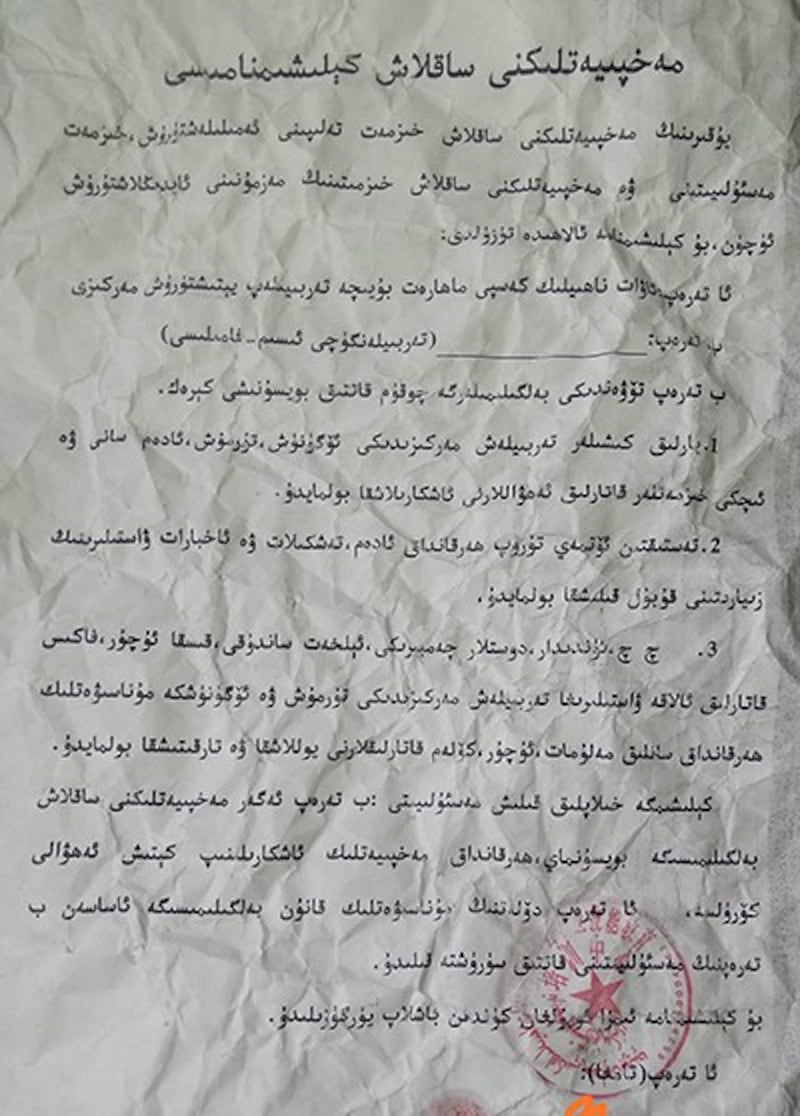 مەخپىيەتلىكنى ساقلاش كېلىشىمنامىسى
يۇقىرىنىڭ مەخپىيەتلىكنى ساقلاش خىزمەت تەلىپىنى ئەمىلىلەشتۈرۈش،خىزمەت
مەسئۇلىيىتىنى ۋە مەخپىيەتلىكنى ساقلاش خىزمىتىنىڭ مەزمۇنىنى ئايدىڭلاشتۇرۇش
ئۈچۈن،بۇ كېلىشىمنامە ئالاھىدە تۈزۈلدى:
ئا تەرەپ: ناھىيىلىك كەسپى ماھارەت بۇيىچە تەربىيىلەپ يېتىشتۈرۈش مەركىزى
ب تەرەپ: (تەربىيلەنگۈچى ئىسىم-فامىلىسى)
ب تەرەپ تۆۋەندىكى بەلگىلىمىلەرگە چوقۇم قاتتىق بويسۇنىشى كېرەك.
1.بارلىق كىشىلەر تەربىيلەش مەركىزىدىكى ئۆگۈنۈش،تۇرمۇش،ئادەم سانى ۋە
ئىچكى خىزمەتلەر قاتارلىق ئەھۋاللارنى ئاشكارىلاشقا بولمايدۇ.
2.تەستىقتىن ئۆتمەي تۇرۇپ ھەرقانداق ئادەم،تەشكىلات ۋە ئاخبارات ۋاستىلىرىنىڭ
زىيارىتىنى قۇبۇل قىلىشقا بولمايدۇ.
3. چ چ،ئۈندىدار،دوستلار چەمبىرىكى،ئېلخەت ساندۇقى،قىسقا ئۇچۇر،فاكىس
قاتارلىق ئالاقە ۋاستىلىرىدا تەربىيلەش مەركىزىدىكى تۇرمۇش ۋە ئۆگۈنۈشكە مۇناسىۋەتلىك
ھەرقانداق سانلىق مەلۇمات،ئۇچۇر،كۆلەم قاتارلىقلارنى يوللاشقا ۋە تارقىتىشقا بولمايدۇ.
كېلىشىمگە خىلاپلىق قىلىش مەسئۇلىيىتى :ب تەرەپ ئەگەر مەخپىيەتلىكنى ساقلاش
بەلگىلىمىسىگە بويسۇنماي،ھەرقانداق مەخپىيەتلىك ئاشكارىلىنىپ كېتىش ئەھۋالى
كۆرۈلسە، ئا تەرەپ دۆلىتىنىڭ مۇناسىۋەتلىك قانۇن بەلگىلىمىسىگە ئاساسەن ب
تەرەپنىڭ مەسئۇلىيىتىنى قاتتىق سۈرۈشتە قىلىدۇ.
بۇ كېلىشىمنامە ئىمزا قويۇلغان كۈندىن باشلاپ يۈرگۈزىلىدۇ.
ئا تەرەپ(تامغا):